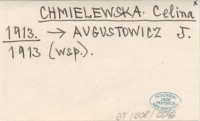 CHMIELEWSKA. Celina
1913. → AUGUSTOWICZ J.
1913 (wsp.).